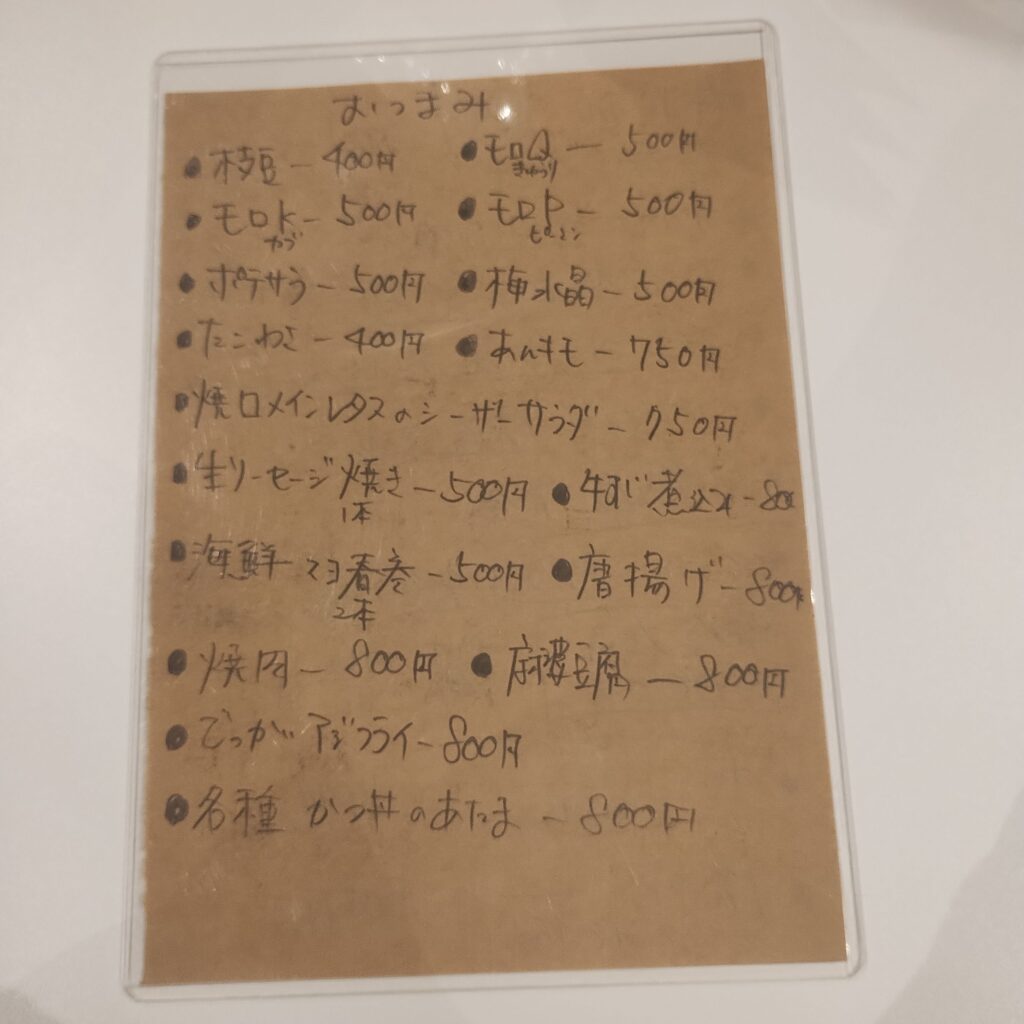 おつまみ
●枝豆ー400円 ●モロQー500円
きゅうり
●モロKー500円 ●モロPー500円
カブ ピーマン
●ポテサラー500円 ●梅水晶ー500円
●たこわさー400円 ●あんキモー750円
●焼ロメインレタスのシーザーサラダー750円
●生ソーセージ焼きー500円 ●牛すじ煮込みー800
1本
●海鮮マヨ春巻ー500円 ●唐揚げー800円
2本
●焼肉ー800円 ●麻婆豆腐ー800円
●でっかいアジフライー800円
●各種 かつ丼のあたまー800円